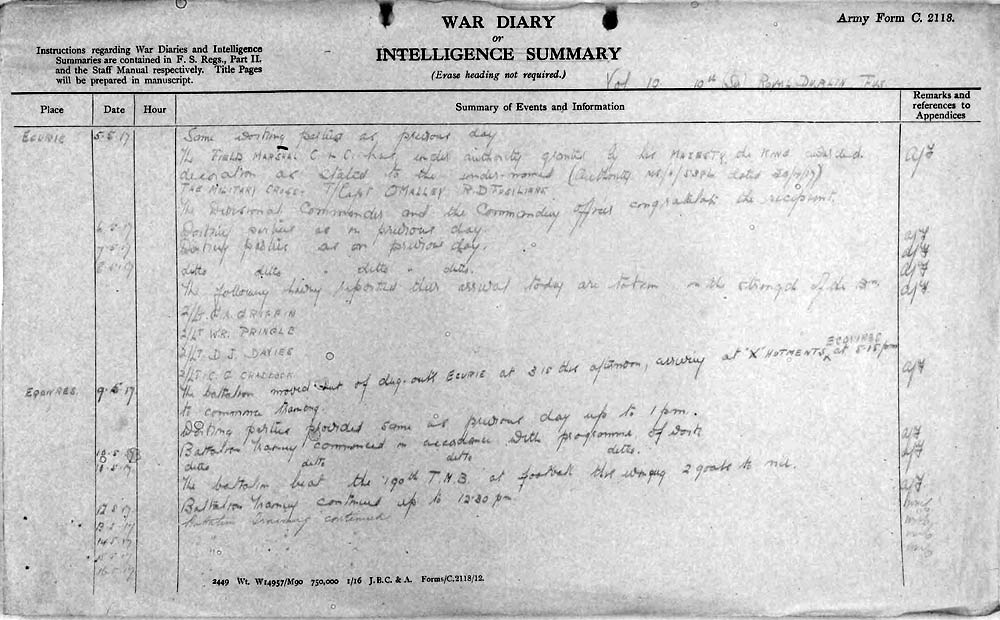 WAR DIARY
or
INTELLIGENCE SUMMARY
(Erase heading not required.)
Army Form C. 2118.
Instructions regarding War Diaries and Intelligence
Summaries are contained in F. S. Regs., Part II.
and the Staff Manual respectively. Title Pages
will be prepared in manuscript.
Vol 10 10th (S) ROYAL DUBLIN FUS
Place
Date
Hour
Summary of Events and Information
Remarks and
references to
Appendices
ECURIE 5.5.17 Some Working parties as previous day
The FIELD MARSHAL C in C. has, under authority granted by his MAJESTY the KING awarded
decoration as stated to the under-named (Authority dated
THE MILITARY CROSS. T/Capt O'MALLEY R.D. FUSILIERS
The Divisional Commander and the Commanding Officer congratulate the recipient.
6.5.17 Working parties as on previous day
7.5.17 Working parties as on previous day.
8.5.17 ditto ditto ditto ditto.
The following having reported their arrival today are taken on the strength of the Bn.
2/Lt. GRIFFIN
2/Lt W.R. PRINGLE
2/Lt. D. J. DAVIES
2/Lt C. G. CRADDOCK
ECOIVRES 9.5.17 The battalion moved out of dug-outs ECURIE at 3.15 this afternoon, arriving at "X" HUTMENTS, ECOIVRES at 5.15 pm
to commence training.
Working parties provided same as previous day up to 1 pm.
10.5.17 Battalion Training commenced in accordance with programme of Work
11.5.17 ditto ditto ditto ditto.
The battalion beat the 190th T.M.B. at football this evening 2 goals to nil.
12.5.17 Battalion Training continued up to 12.30 pm.
13.5.17 Battalion Training continued
14.5.17 " "
15.5.17 " "
16.5.17
2449 Wt. W14957/M90 750,000 1/16 J.B.C. & A. Forms/C.2118/12.